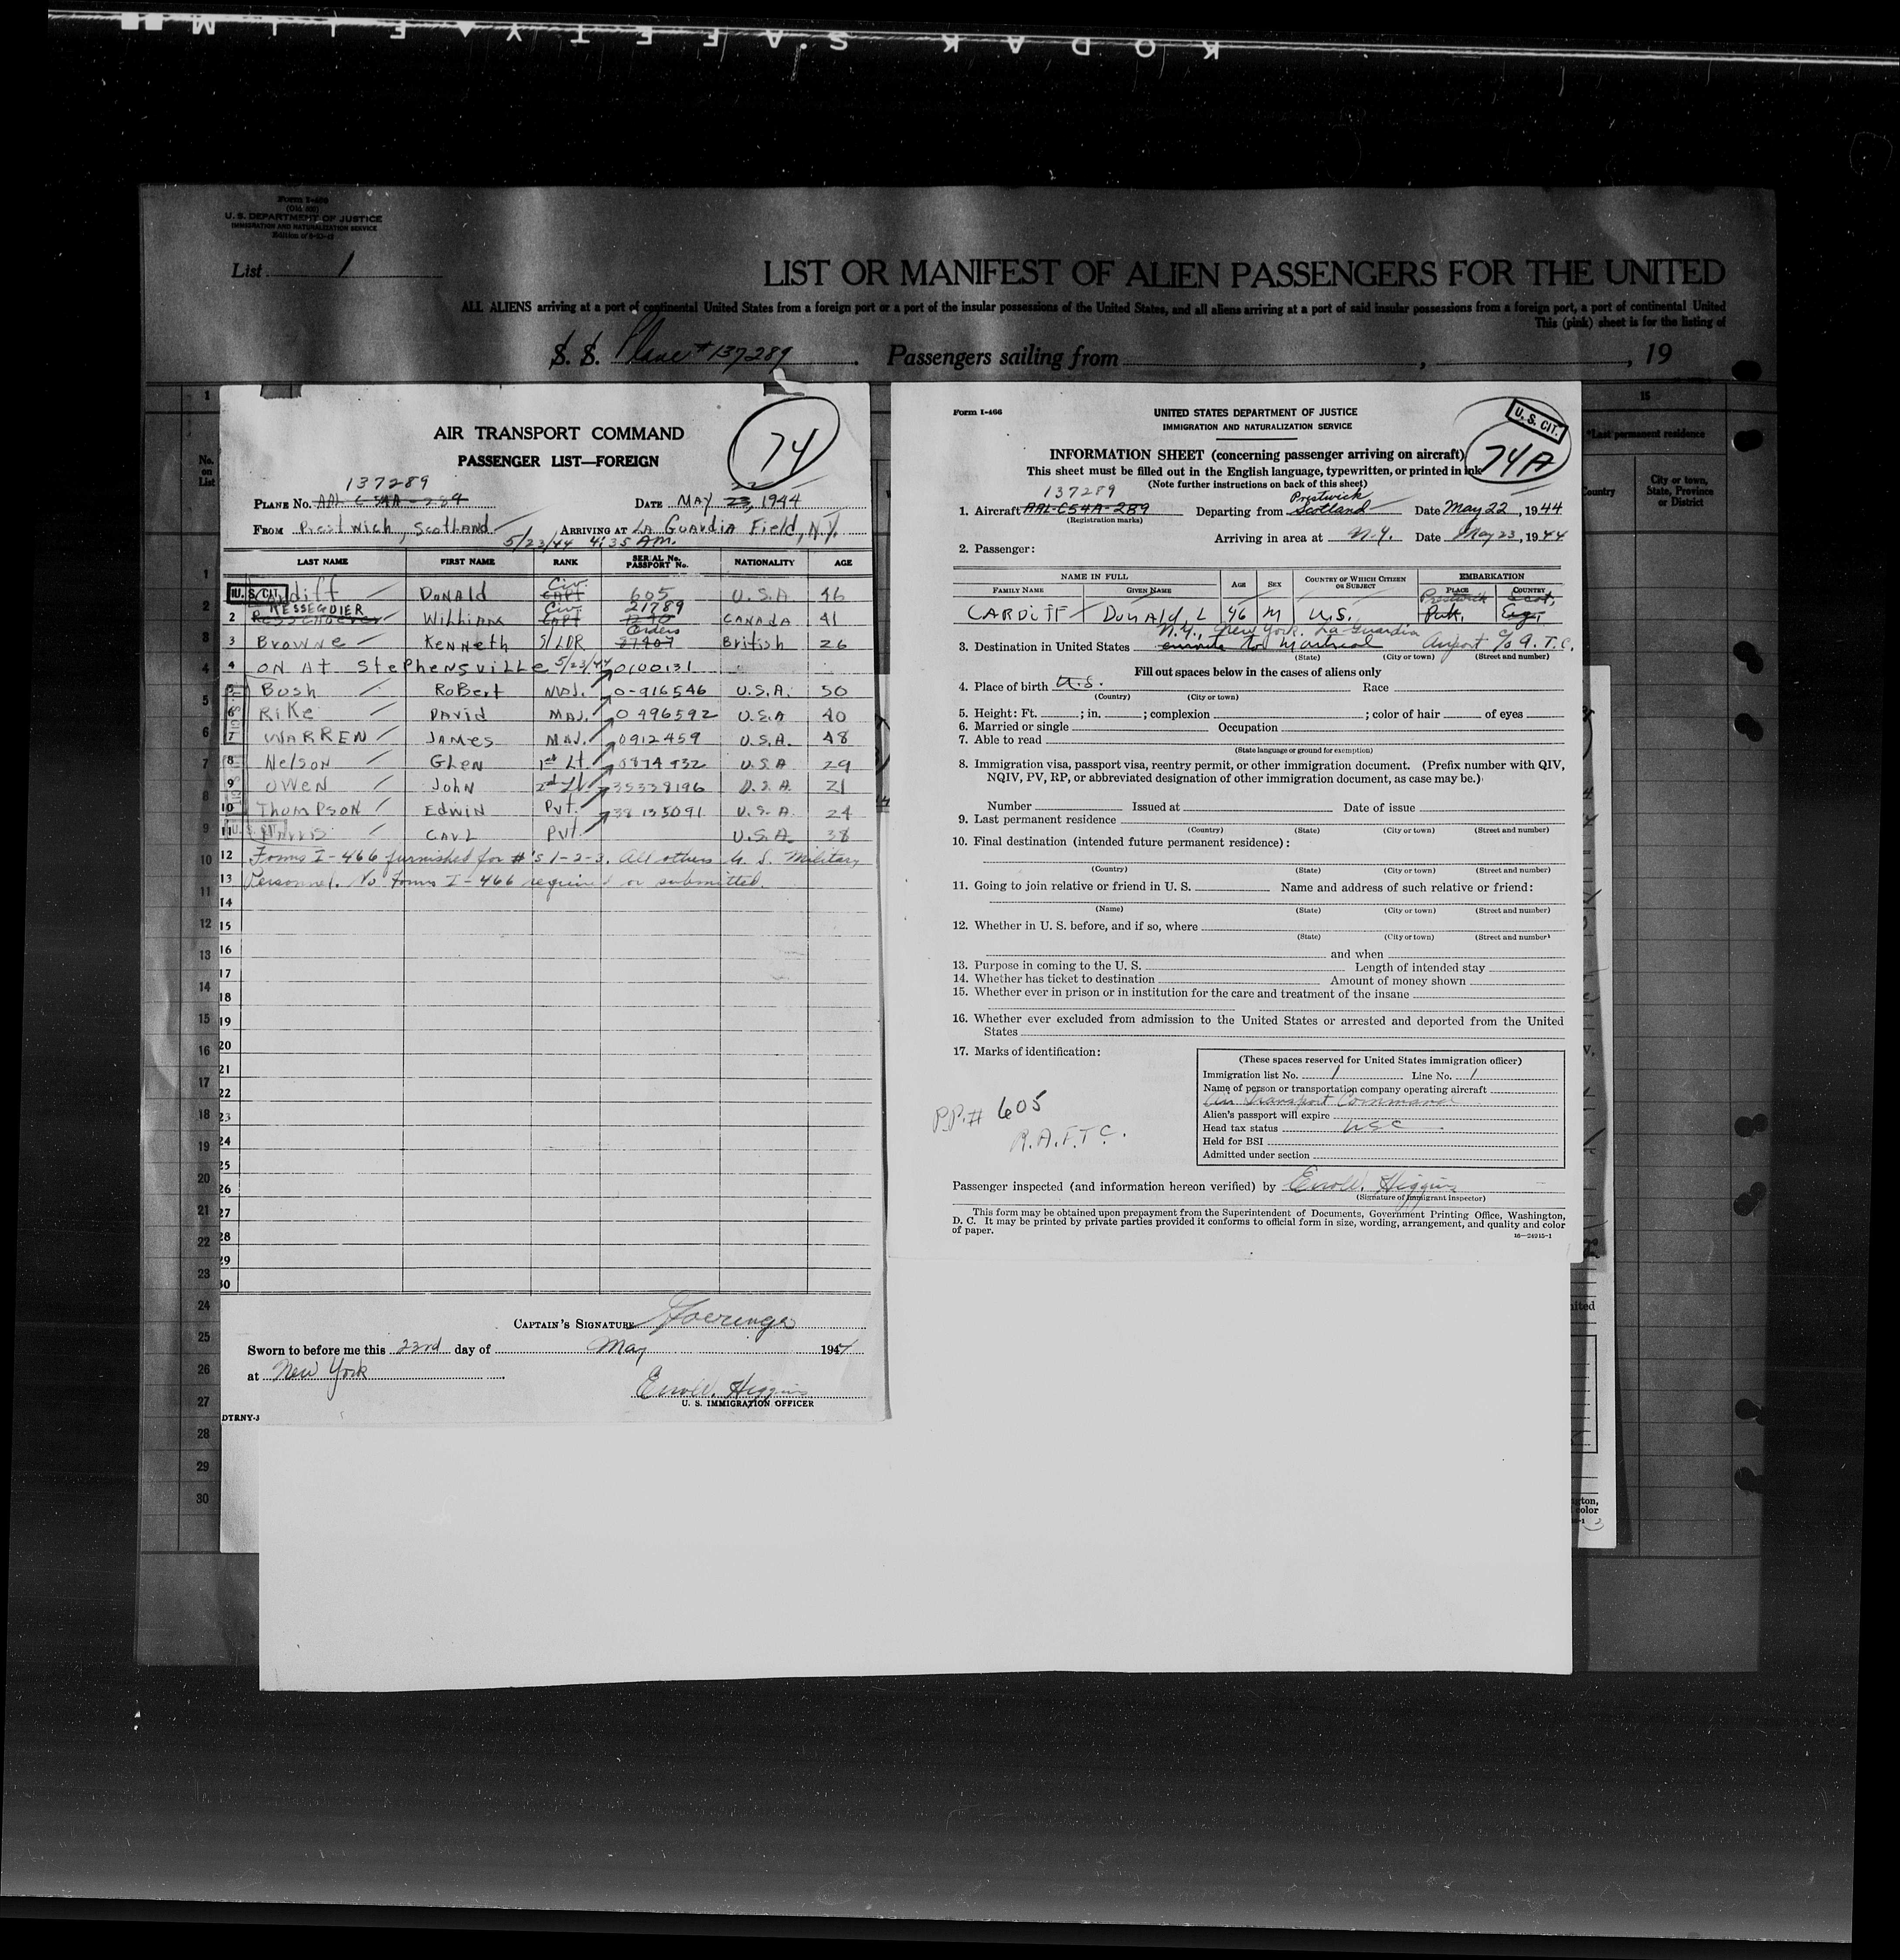 KODAK SAFETY FILM
Form I-466
(Old 500)
U. S. DEPARTMENT OF JUSTICE
IMMIGRATION AND NATURALIZATION SERVICE
List 1
LIST OR MANIFEST OF ALIEN PASSENGERS FOR THE UNITED
ALL ALIENS arriving at a port of continental United States from a foreign port or a port of the insular possessions of the United States, and all aliens arriving at a port of said insular possessions from a foreign port, a port of continental United
This (pink) sheet is for the listing of
S. S. Plane # 137289 Passengers sailing from , , 19
No. on List
15
*Last permanent residence
Country
City or town, State, Province or District
74
AIR TRANSPORT COMMAND
PASSENGER LIST—FOREIGN
137289 22
PLANE NO. AAL C-54A-289 DATE MAY 23, 1944
FROM Prestwich, Scotland ARRIVING AT La Guardia Field, N.Y.
5/23/44 4:35 AM.
LAST NAME FIRST NAME RANK SERIAL No. PASSPORT No. NATIONALITY AGE
U. S. CIT.
1 Cardiff DONALD Civ. CAPT 605 U.S.A 46
RESSEGUIER Civ. 21789
2 William CAPT CANADA 41
Orders
3 Browne Kenneth S/LDR 37407 British 26
4 ON AT Stephensville 5/23/44 0100131
5 Bush Robert MAJ. 0-916546 U.S.A. 50
6 Rike DAVID MAJ. 0 496592 U.S.A 40
7 WARREN JAMES MAJ. 0912459 U.S.A. 48
8 Nelson GLEN 1st Lt. U.S.A 29
9 OWEN JOHN 2nd Lt. 35328196 U.S.A. 21
10 Thompson EDWIN Pvt. 38135091 U.S.A. 24
11 CARL Pvt. U.S.A. 38
12 Forms I-466 furnished for #'s 1-2-3. All others U. S. Military
13 Personnel. No Forms I-466 required or submitted.
14
15
16
17
18
19
20
21
22
23
24
25
26
27
28
29
30
CAPTAIN'S SIGNATURE
Sworn to before me this 23rd day of May 1944
at New York
Higgins
U. S. IMMIGRATION OFFICER
DTRNY-3
Form I-466
UNITED STATES DEPARTMENT OF JUSTICE
IMMIGRATION AND NATURALIZATION SERVICE
U. S. CIT.
74A
INFORMATION SHEET (concerning passenger arriving on aircraft)
This sheet must be filled out in the English language, typewritten, or printed in ink
(Note further instructions on back of this sheet)
137289 Prestwick
1. Aircraft AAL-C54A-289 Departing from Scotland Date May 22, 1944
(Registration marks)
Arriving in area at N.Y. Date May 23, 1944
2. Passenger:
NAME IN FULL AGE SEX COUNTRY OF WHICH CITIZEN OR SUBJECT EMBARKATION
FAMILY NAME GIVEN NAME PLACE COUNTRY
Prestwick Scot.
CARDIFF Donald, L 46 M U.S. Eng.
N.Y., New York. La Guardia
3. Destination in United States enroute to Montreal Airport c/o A.T.C.
(State) (City or town) (Street and number)
Fill out spaces below in the cases of aliens only
4. Place of birth U.S. Race
(Country) (City or town)
5. Height: Ft. ; in. ; complexion ; color of hair of eyes
6. Married or single Occupation
7. Able to read
(State language or ground for exemption)
8. Immigration visa, passport visa, reentry permit, or other immigration document. (Prefix number with QIV,
NQIV, PV, RP, or abbreviated designation of other immigration document, as case may be.)
Number Issued at Date of issue
9. Last permanent residence
(Country) (State) (City or town) (Street and number)
10. Final destination (intended future permanent residence):
(Country) (State) (City or town) (Street and number)
11. Going to join relative or friend in U. S. Name and address of such relative or friend:
(Name) (State) (City or town) (Street and number)
12. Whether in U. S. before, and if so, where
(State) (City or town) (Street and number)
and when
13. Purpose in coming to the U. S. Length of intended stay
14. Whether has ticket to destination Amount of money shown
15. Whether ever in prison or in institution for the care and treatment of the insane
16. Whether ever excluded from admission to the United States or arrested and deported from the United
States
17. Marks of identification:
(These spaces reserved for United States immigration officer)
Immigration list No. 1 Line No. 1
Name of person or transportation company operating aircraft
Air Transport Command
Alien's passport will expire
Head tax status USC
Held for BSI
Admitted under section
P.P.# 605
R.A.F.T.C.
Passenger inspected (and information hereon verified) by Higgins
(Signature of Immigrant Inspector)
This form may be obtained upon prepayment from the Superintendent of Documents, Government Printing Office, Washington,
D. C. It may be printed by private parties provided it conforms to official form in size, wording, arrangement, and quality and color
of paper.
16—24915-1